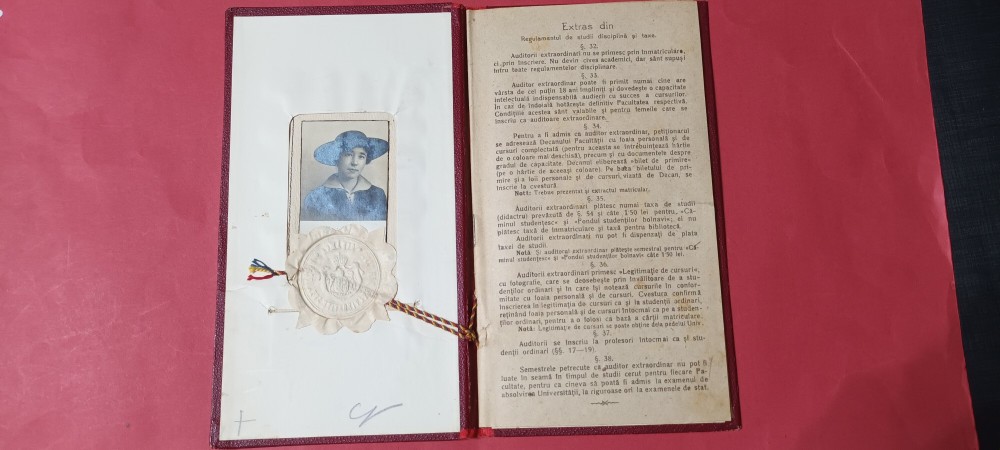 Extras din
Regulamentul de studii disciplină și taxe.
§. 32.
Auditorii extraordinari nu se primesc prin înmatriculare,
ci prin înscriere. Nu devin cives academici, dar sânt supuși
întru toate regulamentelor disciplinare.
§. 33.
Auditor extraordinar poate fi primit numai cine are
vârsta de cel puțin 18 ani împliniți și dovedește o capacitate
intelectuală indispensabilă audierii cu succes a cursurilor.
În caz de îndoială hotărește definitiv Facultatea respectivă.
Condițiile acestea sânt valabile și pentru femeile care se
înscriu ca auditoare extraordinare.
§. 34.
Pentru a fi admis ca auditor extraordinar, petiționarul
se adresează Decanului Facultății cu foaia personală și de
cursuri complectată (pentru aceasta se întrebuințează hârtie
de o coloare mai deschisă), precum și cu documentele despre
gradul de capacitate. Decanul eliberează «bilet de primire»
(pe o hârtie de aceeași coloare). Pe baza biletului de pri-
mire și a foii personale și de cursuri, vizată de Decan, se
înscrie la cvestură.
Notă: Trebue prezentat și extractul matricular.
§. 35.
Auditorii extraordinari plătesc numai taxa de studii
(didactru) prevăzută de §. 54 și câte 1·50 lei pentru, «Că-
minul studențesc» și «Fondul studenților bolnavi», ei nu
plătesc taxă de înmatriculare și taxă pentru bibliotecă.
Auditorii extraordinari nu pot fi dispensați de plata
taxei de studii.
Notă Și auditorul extraordinar plătește semestral pentru «Că-
minul studențesc» și «Fondul studenților bolnavi» câte 1·50 lei.
§. 36.
Auditorii extraordinari primesc «Legitimație de cursuri»,
cu fotografie, care se deosebește prin învălitoare de a stu-
denților ordinari și în care își notează cursurile în confor-
mitate cu foaia personală și de cursuri. Cvestura confirmă
înscrierea în legitimația de cursuri ca și la studenții ordinari,
reținând foaia personală și de cursuri întocmai ca pe a studen-
ților ordinari, pentru a o folosi ca bază a cărții matriculare.
Notă: Legitimație de cursuri se poate obține dela pedelul Univ.
§. 37.
Auditorii se înscriu la profesori întocmai ca și stu-
denții ordinari (§§. 17—19).
§. 38.
Semestrele petrecute ca auditor extraordinar nu pot fi
luate în seamă în timpul de studii cerut pentru fiecare Fa-
cultate, pentru ca cineva să poată fi admis la examenul de
absolvirea Universității, la riguroase ori la examenele de stat.